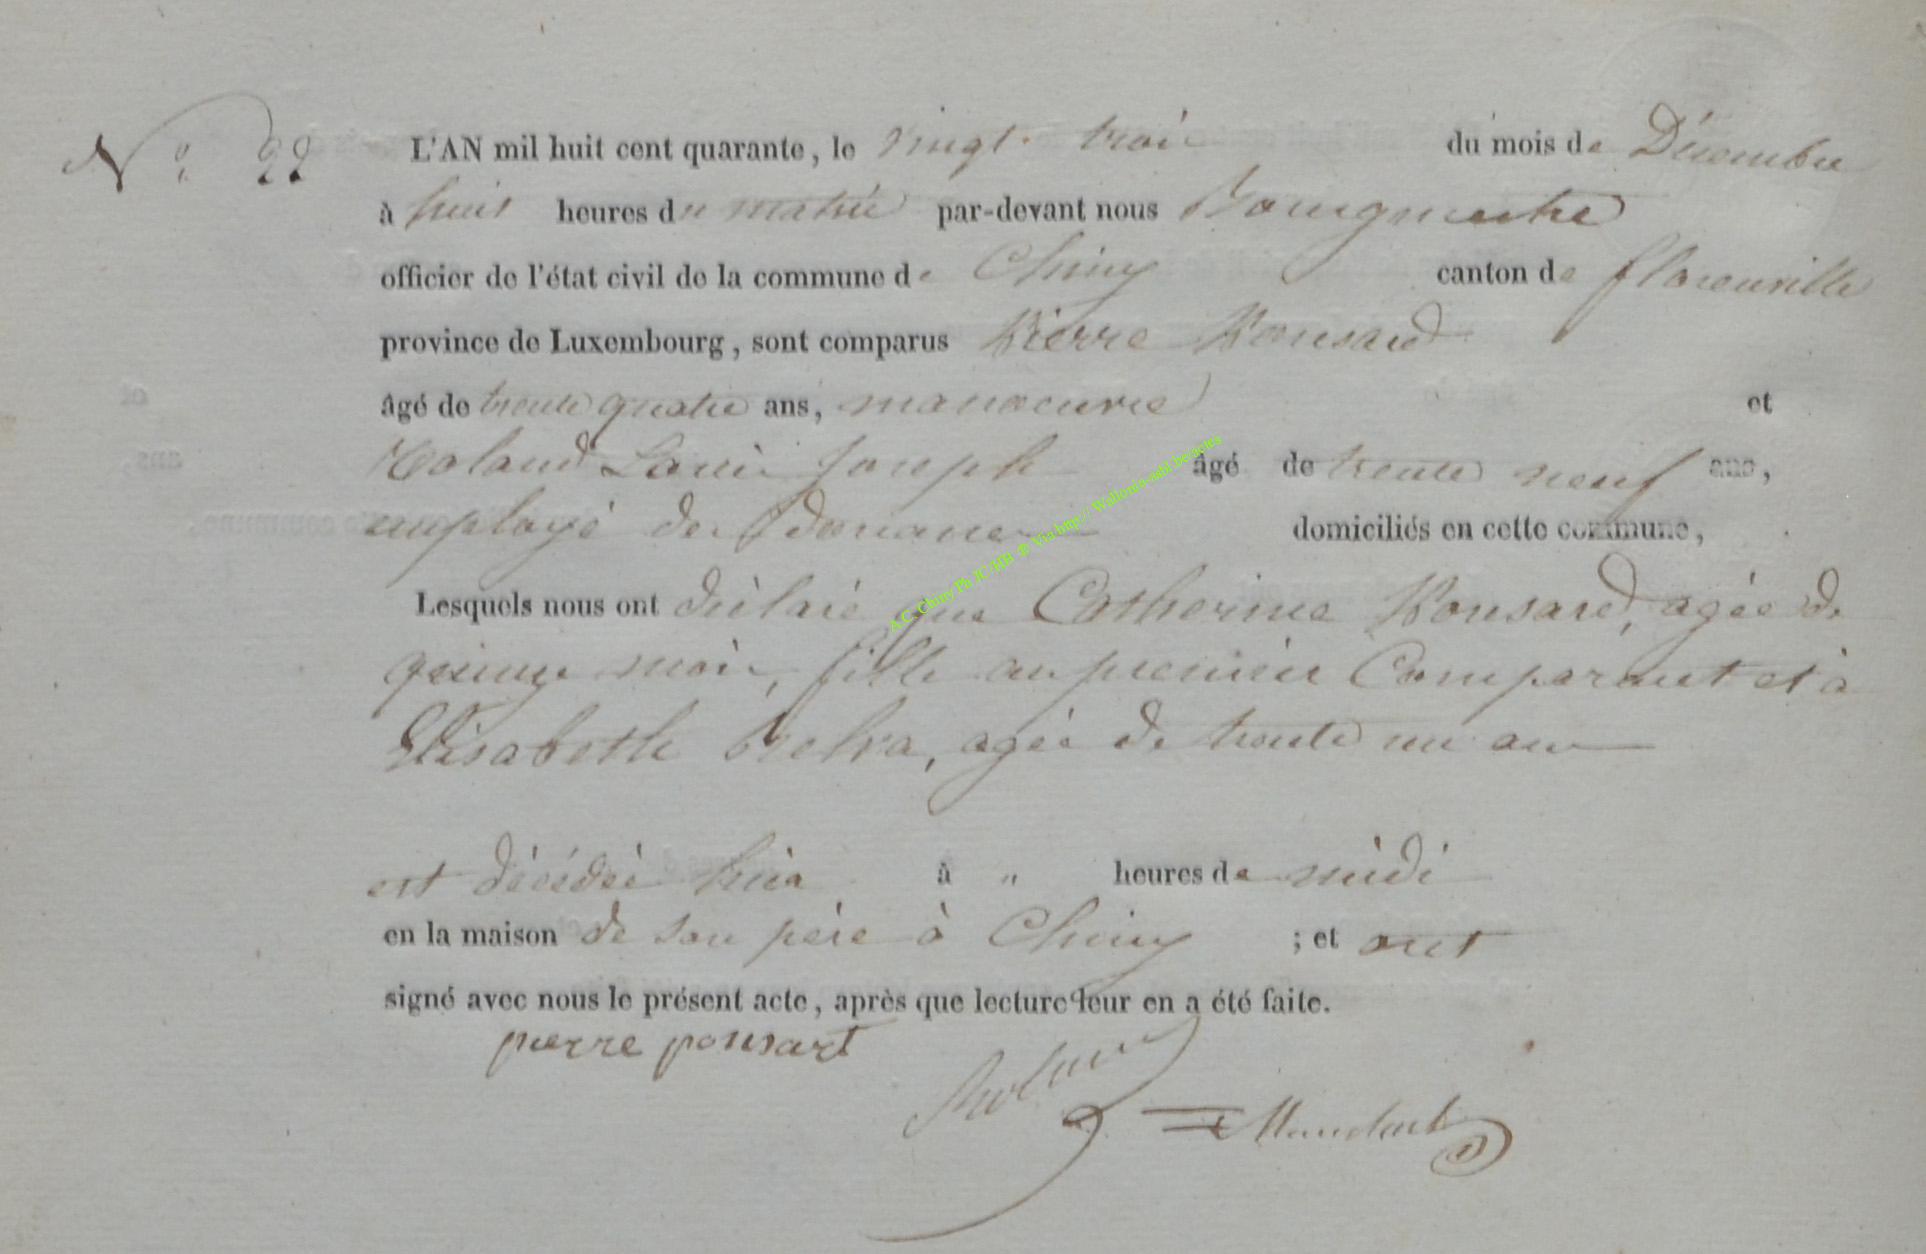 N° 22
L'AN mil huit cent quarante, le vingt-trois du mois de Décembre
à huit heures du matin par-devant nous Bourgmestre
officier de l'état civil de la commune de Chiny canton de florenville
province de Luxembourg, sont comparus Pierre Ponsard
âgé de trente quatre ans, manoeuvre et
Roland Louis Joseph âgé de trente neuf ans,
employé des douanes domiciliés en cette commune,
Lesquels nous ont déclaré que Catherine Ponsard, agée de
quinze mois, fille au premier Comparant et à
Elisabeth agée de trente un ans
est décédée hier à " heures de midi
en la maison de son père à Chiny ; et ont
signé avec nous le présent acte, après que lecture leur en a été faite.
pierre ponsart
A.C. Chiny Ph JC-HB ® Via http://Wallonia-asbl.be/actes